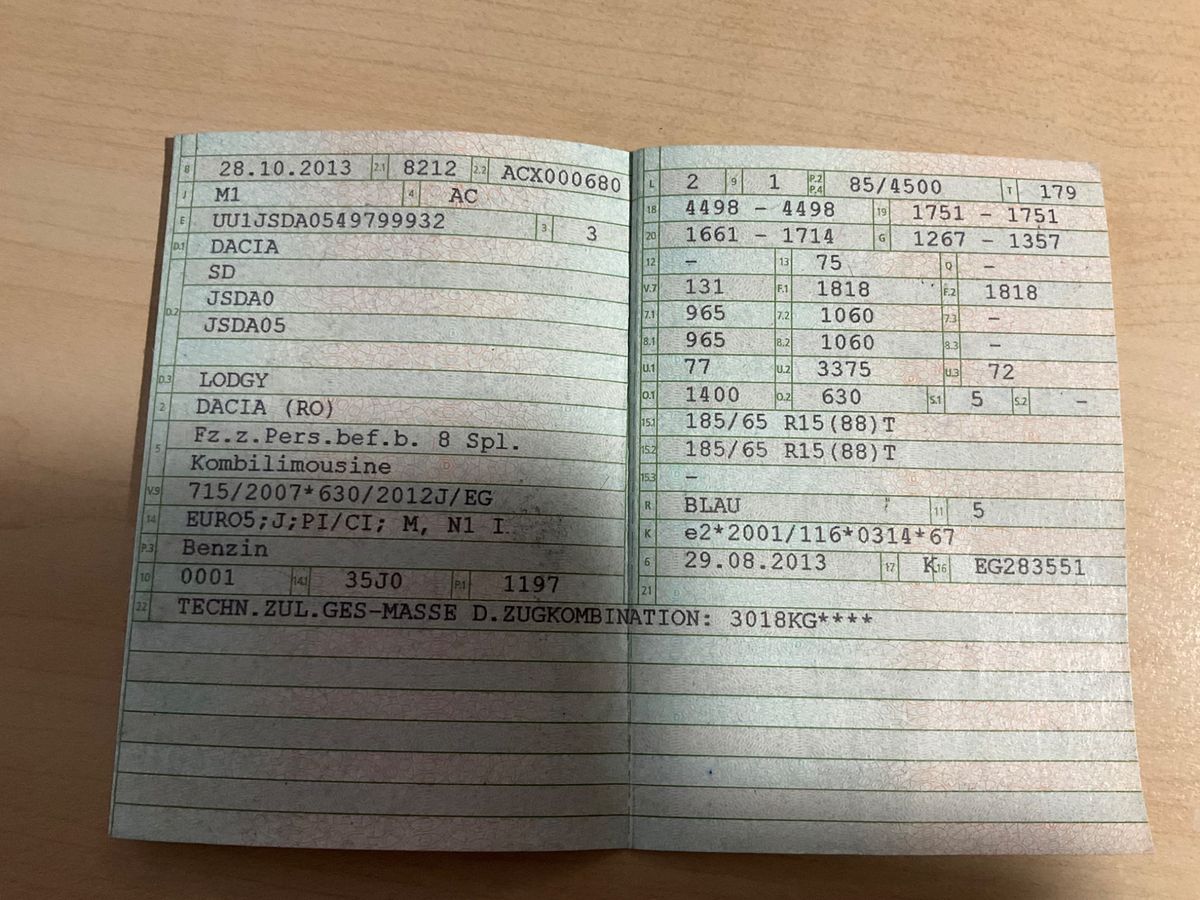 B 28.10.2013 2.1 8212 2.2 ACX000680
J M1 4 AC
E UU1JSDA0549799932 3 3
D.1 DACIA
SD
D.2 JSDA0
JSDA05
D.3 LODGY
2 DACIA (RO)
5 Fz.z.Pers.bef.b. 8 Spl.
Kombilimousine
V.9 715/2007*630/2012J/EG
14 EURO5;J;PI/CI; M, N1 I
P.3 Benzin
10 0001 14.1 35J0 P.1 1197
22 TECHN.ZUL.GES-MASSE D.ZUGKOMBINATION: 3018KG****
L 2 9 1 P.2 P.4 85/4500 T 179
18 4498 - 4498 19 1751 - 1751
20 1661 - 1714 G 1267 - 1357
12 - 13 75 Q -
V.7 131 F.1 1818 F.2 1818
7.1 965 7.2 1060 7.3 -
8.1 965 8.2 1060 8.3 -
U.1 77 U.2 3375 U.3 72
O.1 1400 O.2 630 S.1 5 S.2 -
15.1 185/65 R15(88)T
15.2 185/65 R15(88)T
15.3 -
R BLAU 11 5
K e2*2001/116*0314*67
6 29.08.2013 17 K 16 EG283551
21